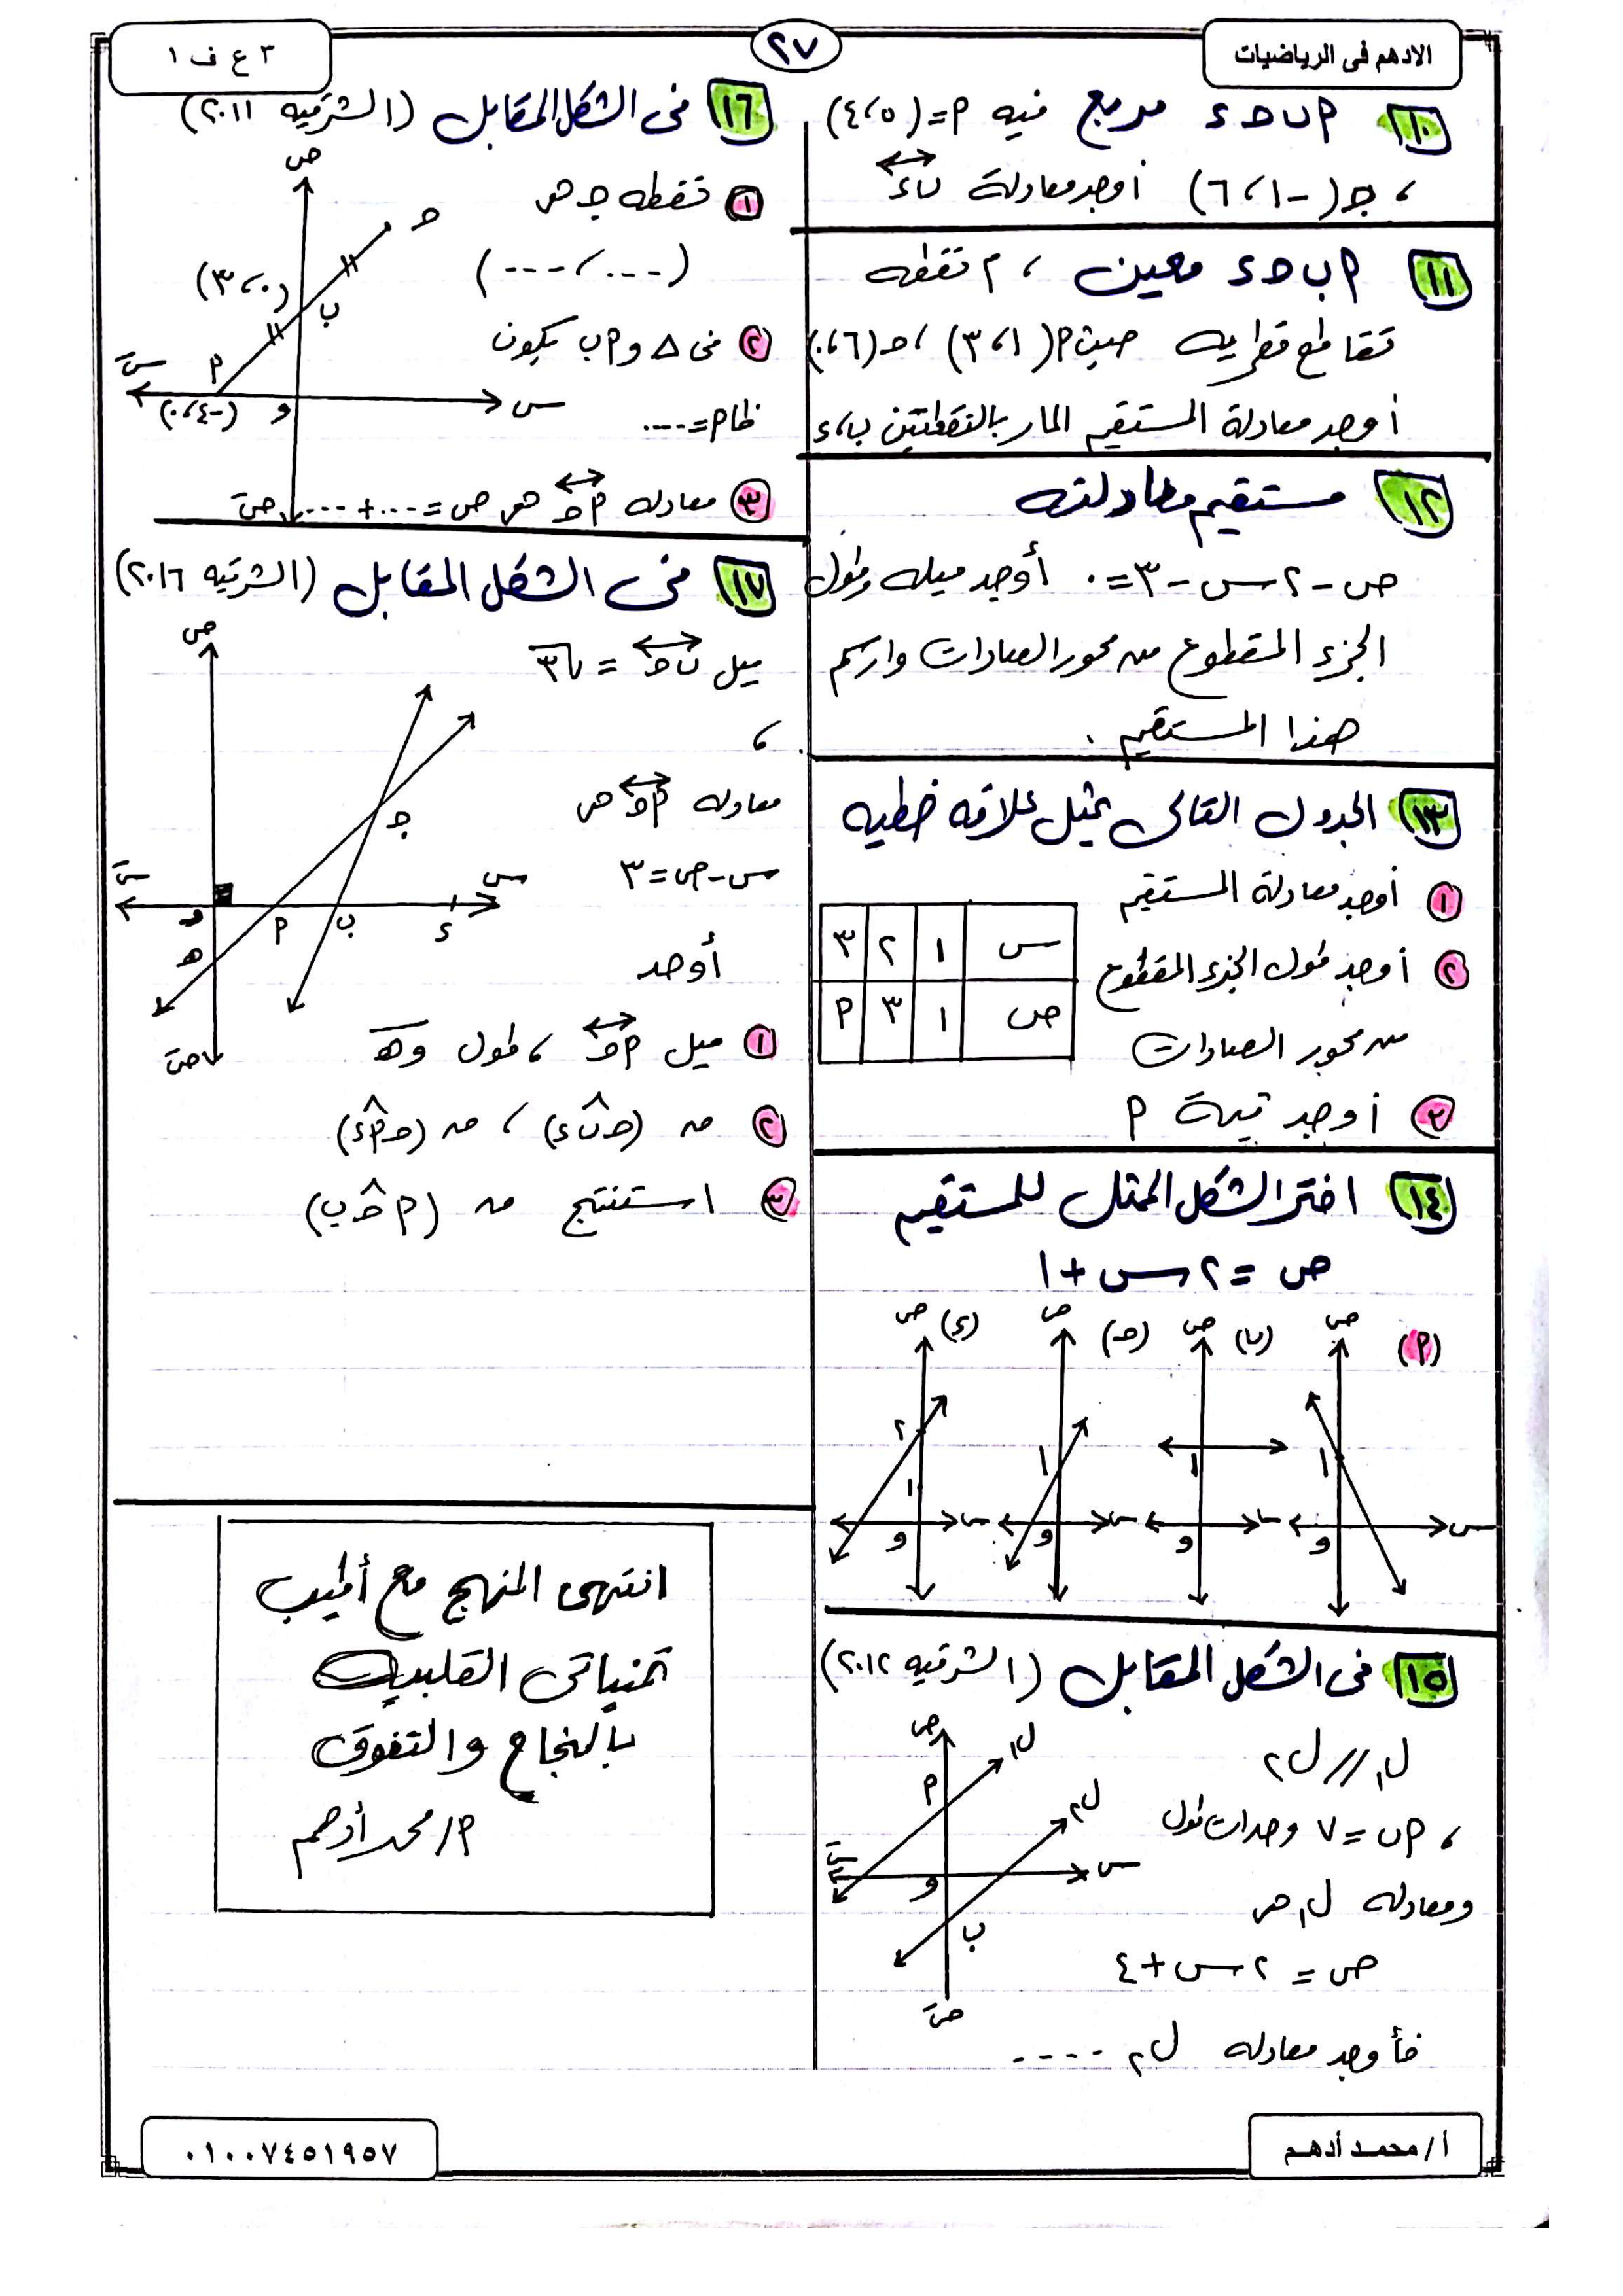 الادهم فى الرياضيات
٢٧
٣ ع ف ١
١٠ ٩ ب ح ء مربع فيه ٩ = (٥ ، ٤)
، جـ (-١ ، ٦) أوجد معادلة ب ء
١١ ٩ ب ح ء معين ، م نقطة
تقاطع قطريه حيث ٩ (١ ، ٣) ، ح (٦ ، ٠)
أوجد معادلة المستقيم المار بالنقطتين ب ، ء
١٢ مستقيم معادلته
ص - ٢ س - ٣ = ٠ أوجد ميله وطول
الجزء المقطوع من محور الصادات وارسم
هذا المستقيم .
١٣ الجدول التالى يمثل علاقه خطيه
١ أوجد معادلة المستقيم
٢ أوجد طول الجزء المقطوع
من محور الصادات
٣ أوجد قيمة ٩
س ١ ٢ ٣
ص ١ ٣ ٩
١٤ اختر الشكل الممثل للمستقيم
ص = ٢ س + ١
(٩) ص ١ و س
(ب) ص ١ و س
(ح) ص ١ و س
(ء) ص ٢ ١ و س
١٥ فى الشكل المقابل (الشرقيه ٢٠١٢)
ل١ // ل٢
، ٩ ب = ٧ وحدات طول
ومعادله ل١ هى
ص = ٢ س + ٤
فأوجد معادله ل٢ ----
ص ل١ ٩ ل٢ سَ س و ب صَ
١٦ فى الشكل المقابل (الشرقيه ٢٠١١)
١ نقطه جـ هى
(--- ، ---)
٢ فى △ و ٩ ب يكون
ظا ٩ = ----
٣ معادله ٩ ح هى ص = --- + ---
ص ح (٠ ، ٣) ب ٩ سَ س (-٤ ، ٠) و صَ
١٧ فى الشكل المقابل (الشرقيه ٢٠١٦)
ميل ب ح = √٣
،
معادله ٩ ح هى
س - ص = ٣
أوجد
١ ميل ٩ ح ، طول و هـ
٢ ق (ح ب ء) ، ق (ح ٩ ء)
٣ استنتج ق (٩ ح ب)
ص جـ سَ س و ٩ ب ء هـ صَ
انتهى المنهج مع أطيب
تمنياتى القلبية
بالنجاح والتفوق
٩/ محمد أدهم
أ / محمد أدهم
٠١٠٠٧٤٥١٩٥٧